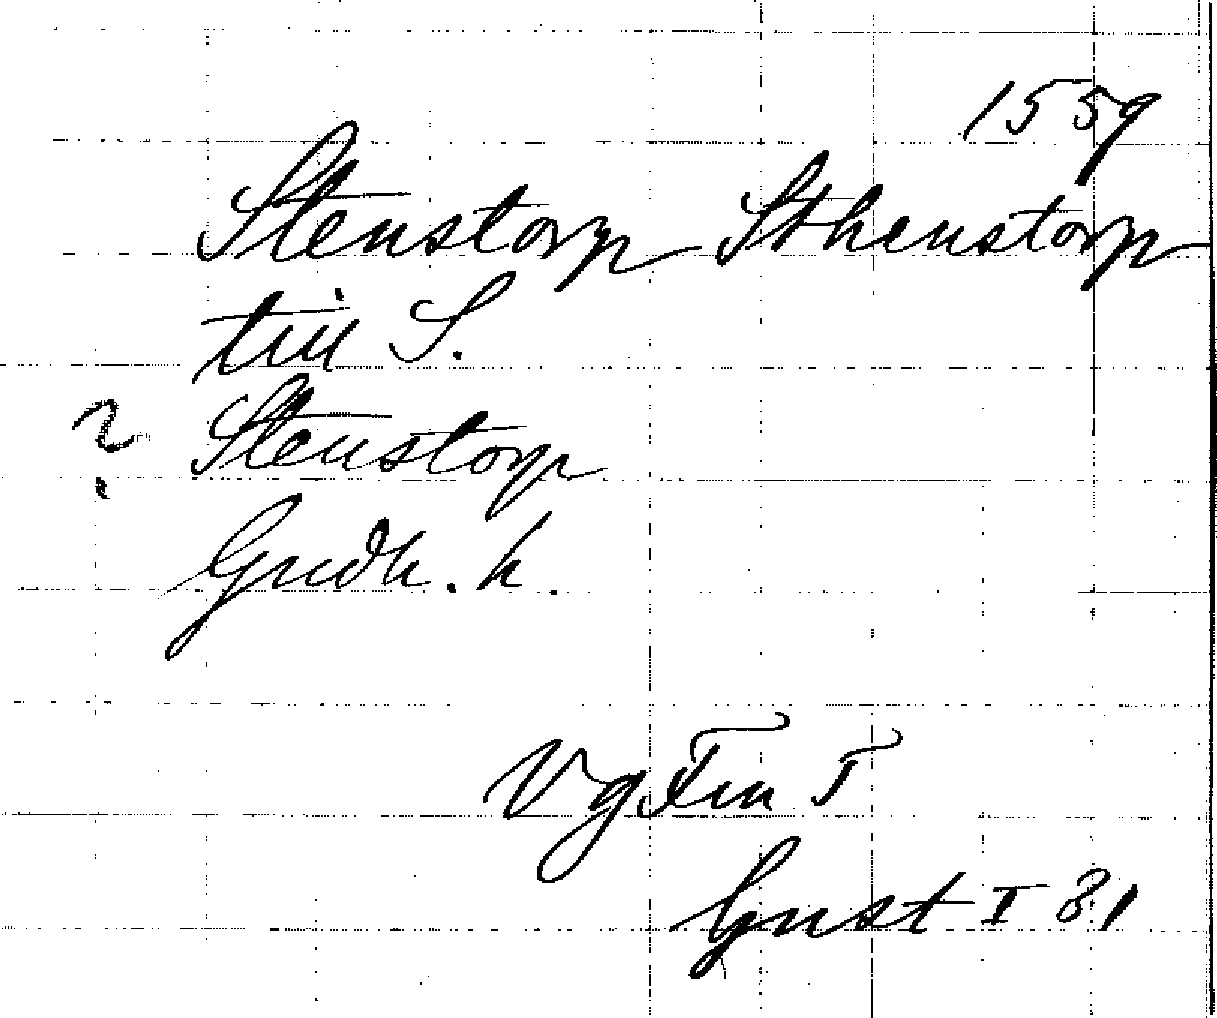 1559
Stenstorp Sthenstorp
till S.
? Stenstorp
Gudh. h.
Vg Fm T
Gust I 31